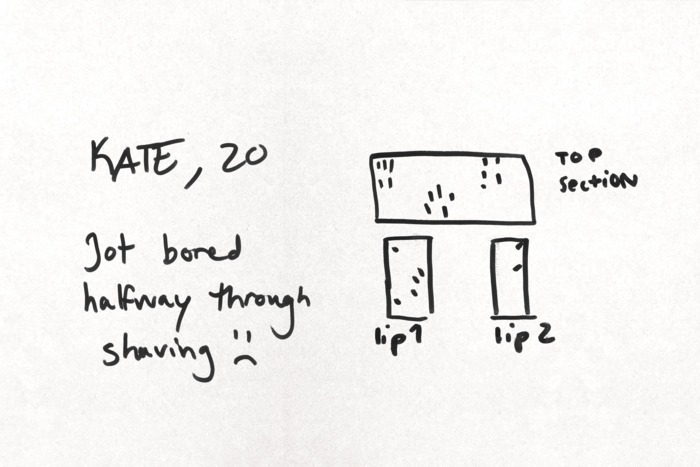 KATE, 20
Got bored
halfway through
shaving :(
TOP
SECTION
lip 1
lip 2